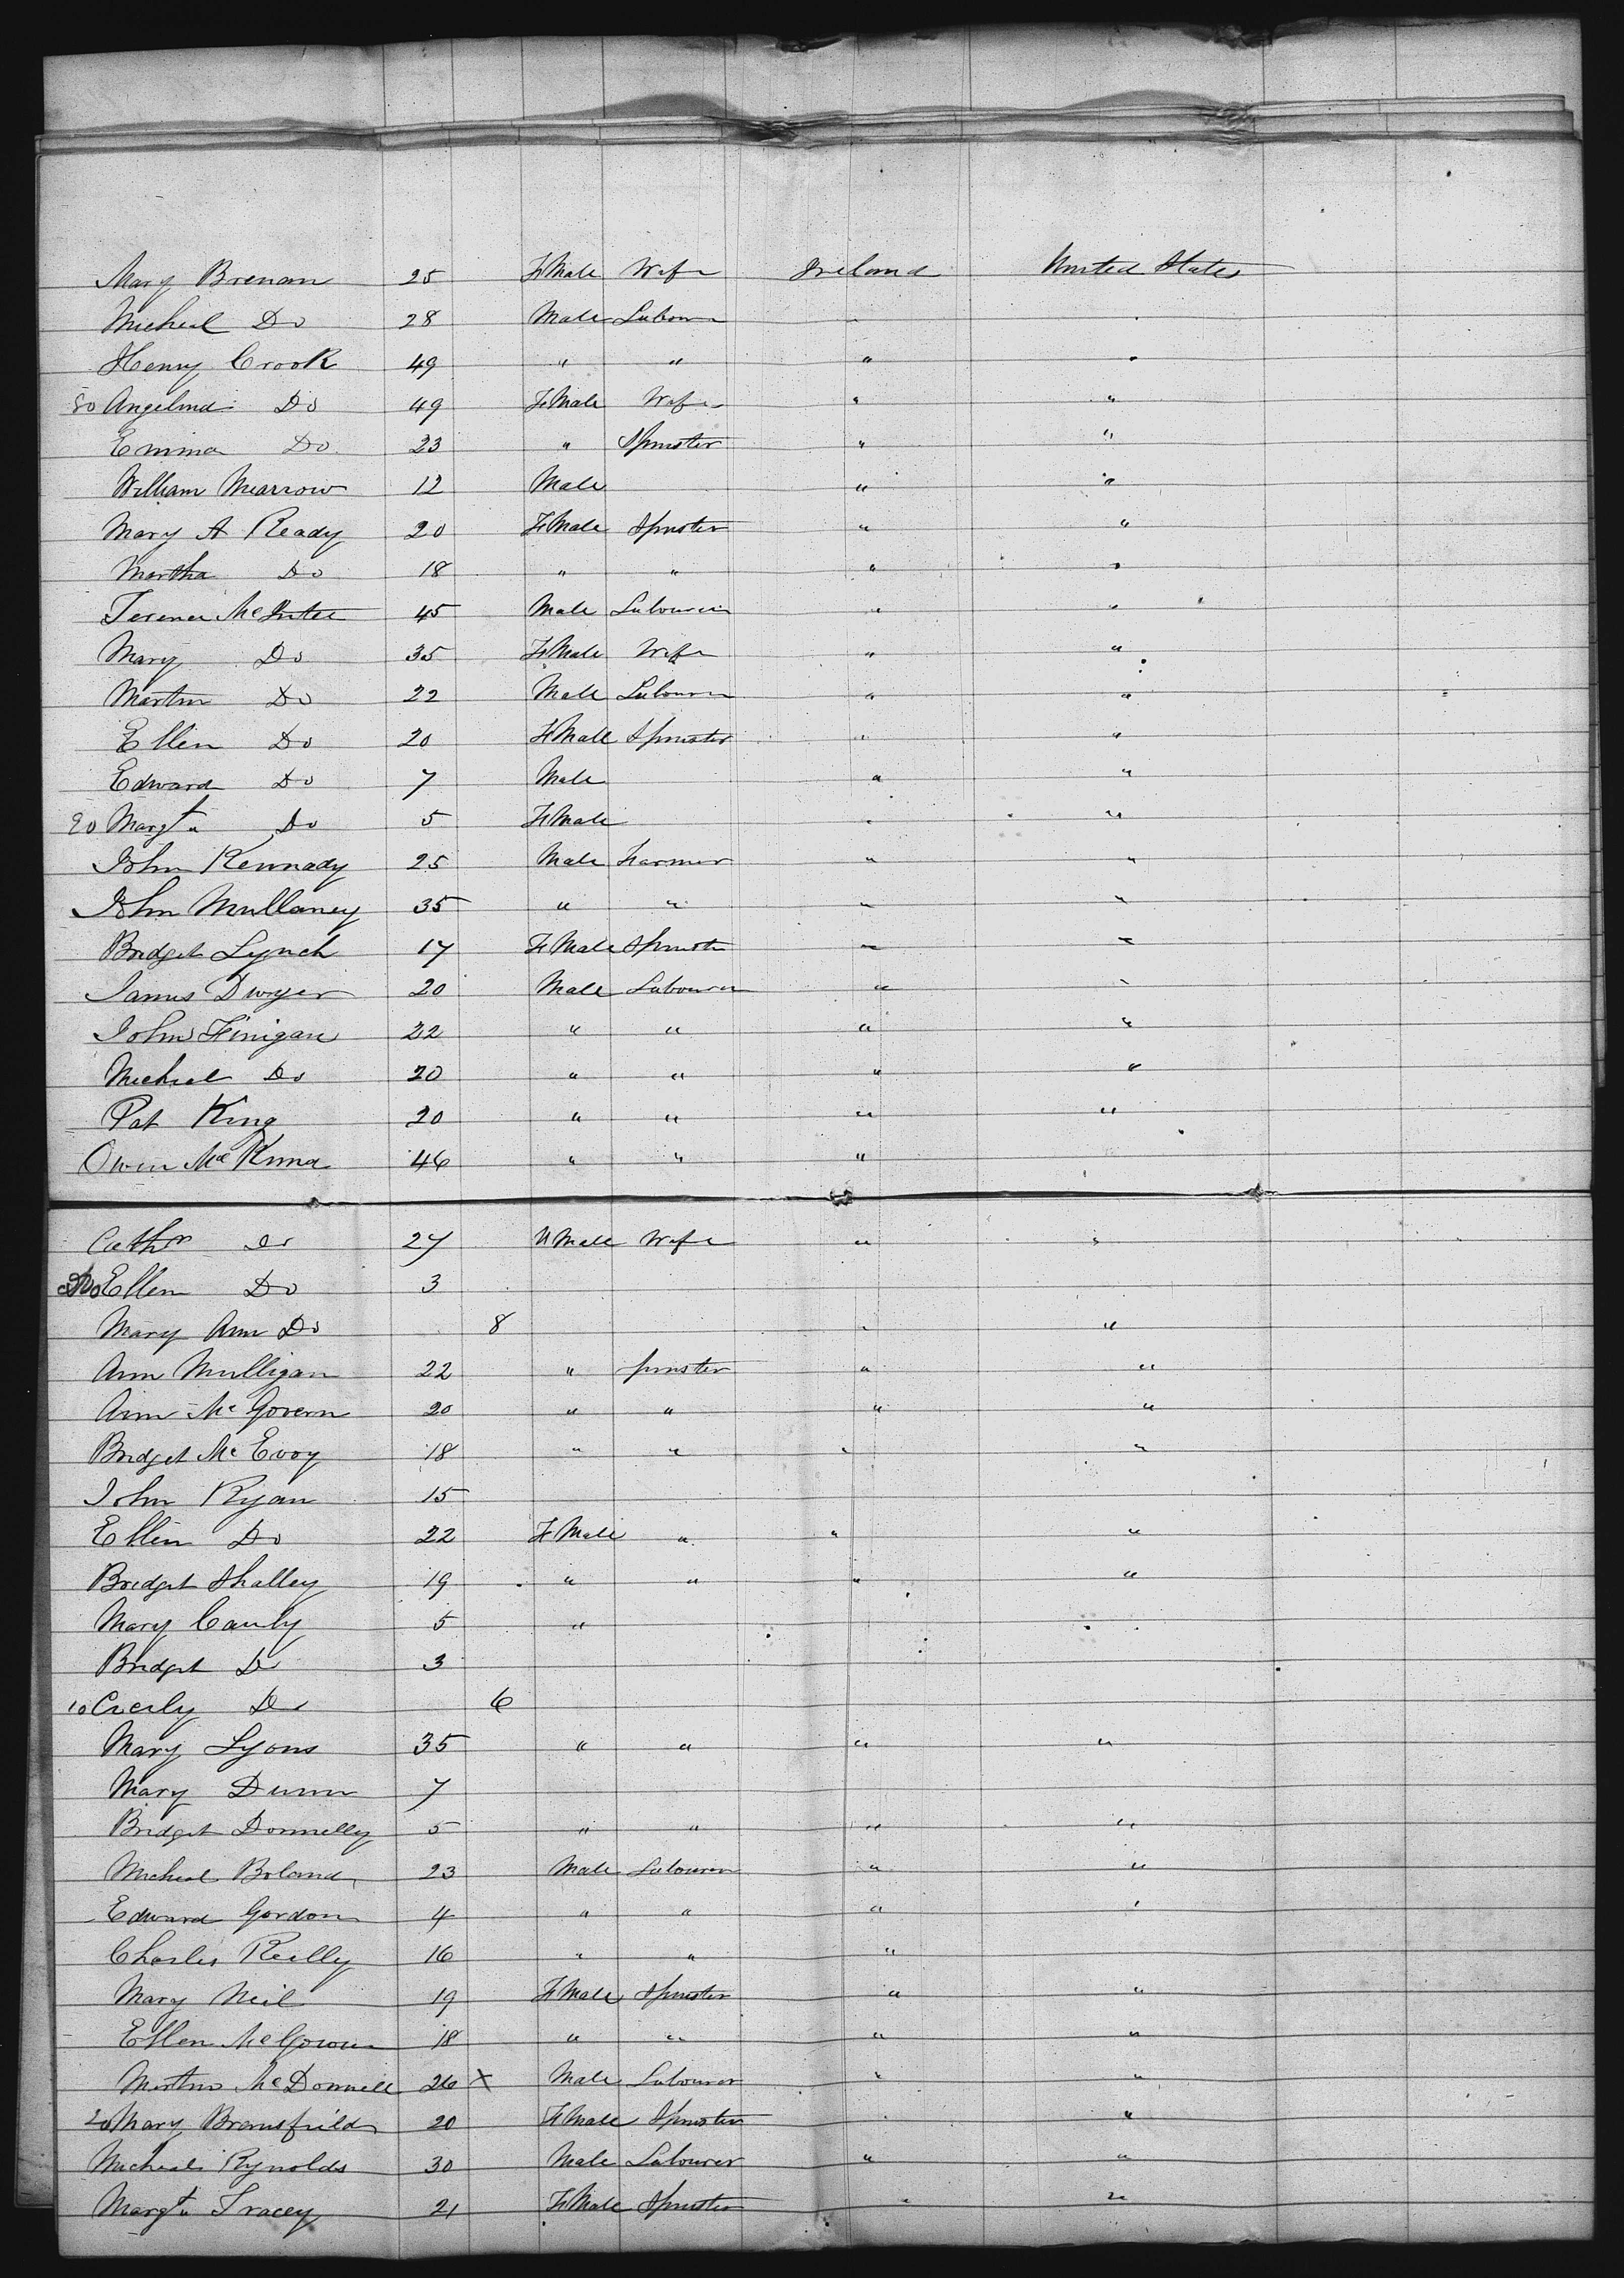 Mary Brenan 25 FMale Wife Ireland United States
Micheal Do 28 Male Labour " "
Henry Crook 49 " " " "
80 Angelina Do 49 FMale Wife " "
Emma Do 23 " Spinster " "
William Mearrow 12 Male " "
Mary A Ready 20 FMale Spinster " "
Martha Do 18 " " " "
Terence McEntee 45 Male Labourer " "
Mary Do 35 FMale Wife " "
Martin Do 22 Male Labourer " "
Ellen Do 20 FMale Spinster " "
Edward Do 7 Male " "
90 Margt Do 5 FMale " "
John Kennady 25 Male Farmer " "
John Mullaney 35 " " " "
Bridget Lynch 17 FMale Spinster " "
James Dwyer 20 Male Labourer " "
John Finigan 22 " " " "
Micheal Do 20 " " " "
Pat King 20 " " " "
Owen McKenna 46 " " "
Cathn Do 27 FMale Wife " "
Ellen Do 3
Mary Ann Do 8 " "
Ann Mulligan 22 " Spinster " "
Ann McGovern 20 " " " "
Bridget McEvoy 18 " " " "
John Ryan 15
Ellen Do 22 FMale " " "
Bridget Shalley 19 " " " "
Mary Cauly 5 "
Bridget Do 3
10 Do 6
Mary Lyons 35 " " " "
Mary Dunn 7
Bridget Donnelly 5 " " " "
Micheal Boland 23 Male Labourer " "
Edward Gordon 4 " " " "
Charles Reilly 16 " " "
Mary Neil 19 FMale Spinster " "
Ellen McGowan 18 " " " "
Martin McDonnell 26 X Male Labourer " "
20 Mary 20 FMale Spinster "
Micheal Rynolds 30 Male Labourer " "
Margt Tracey 21 FMale Spinster " "